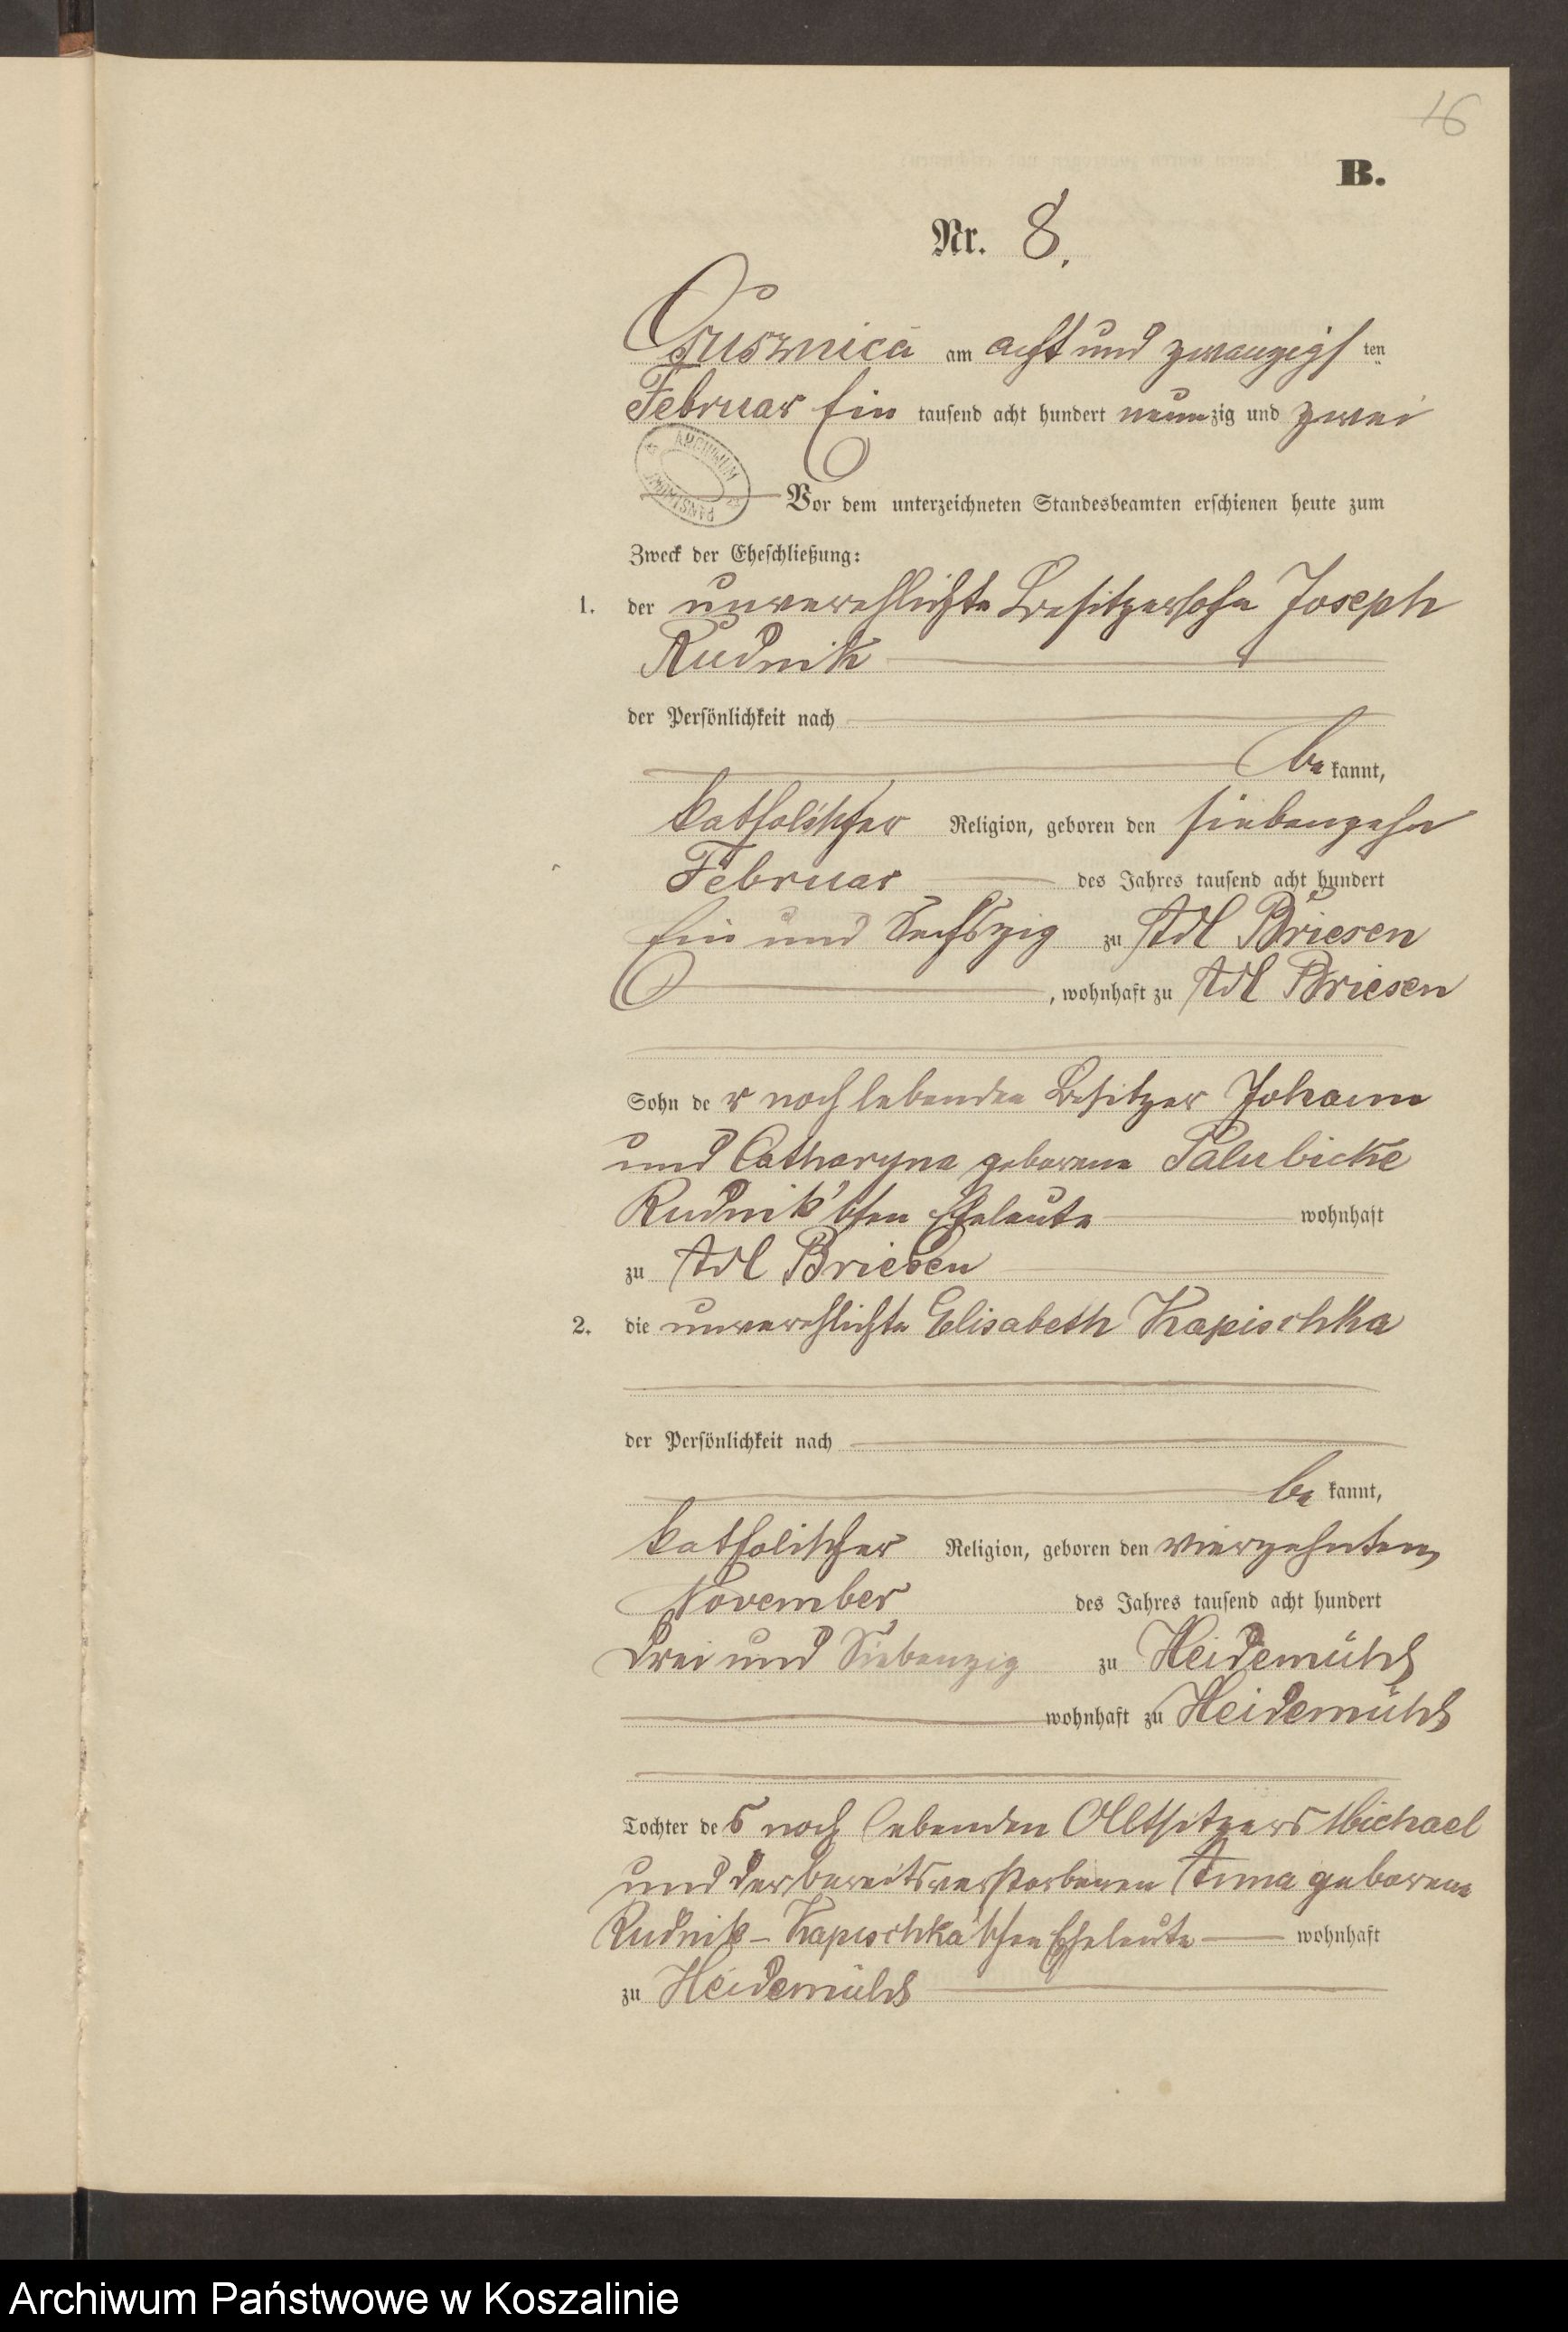 16
B.
Nr. 8.
Gusznica am acht und zwanzigs ten
Februar Ein tausend acht hundert neun zig und zwei
ARCHIWUM PAŃSTWOWE
Vor dem unterzeichneten Standesbeamten erschienen heute zum
Zweck der Eheschließung:
1. der unverehlichte Besitzersohn Joseph
Rudnik
der Persönlichkeit nach
be kannt,
katholischer Religion, geboren den siebenzehn
Februar des Jahres tausend acht hundert
Ein und Sechszig zu Adl Briesen
, wohnhaft zu Adl Briesen
Sohn de r noch lebenden Besitzer Johann
und Catharyna geborene Palubicke
Rudnik'schen Eheleute wohnhaft
zu Adl Briesen
2. die unverehlichte Elisabeth Kapischka
der Persönlichkeit nach
be kannt,
katholischer Religion, geboren den vierzehnten
November des Jahres tausend acht hundert
drei und Siebenzig zu Heidemühl
wohnhaft zu Heidemühl
Tochter de s noch lebenden Altsitzers Michael
und der bereits verstorbenen Anna geborene
Rudnik - Kapischka'schen Eheleute wohnhaft
zu Heidemühl
Archiwum Państwowe w Koszalinie